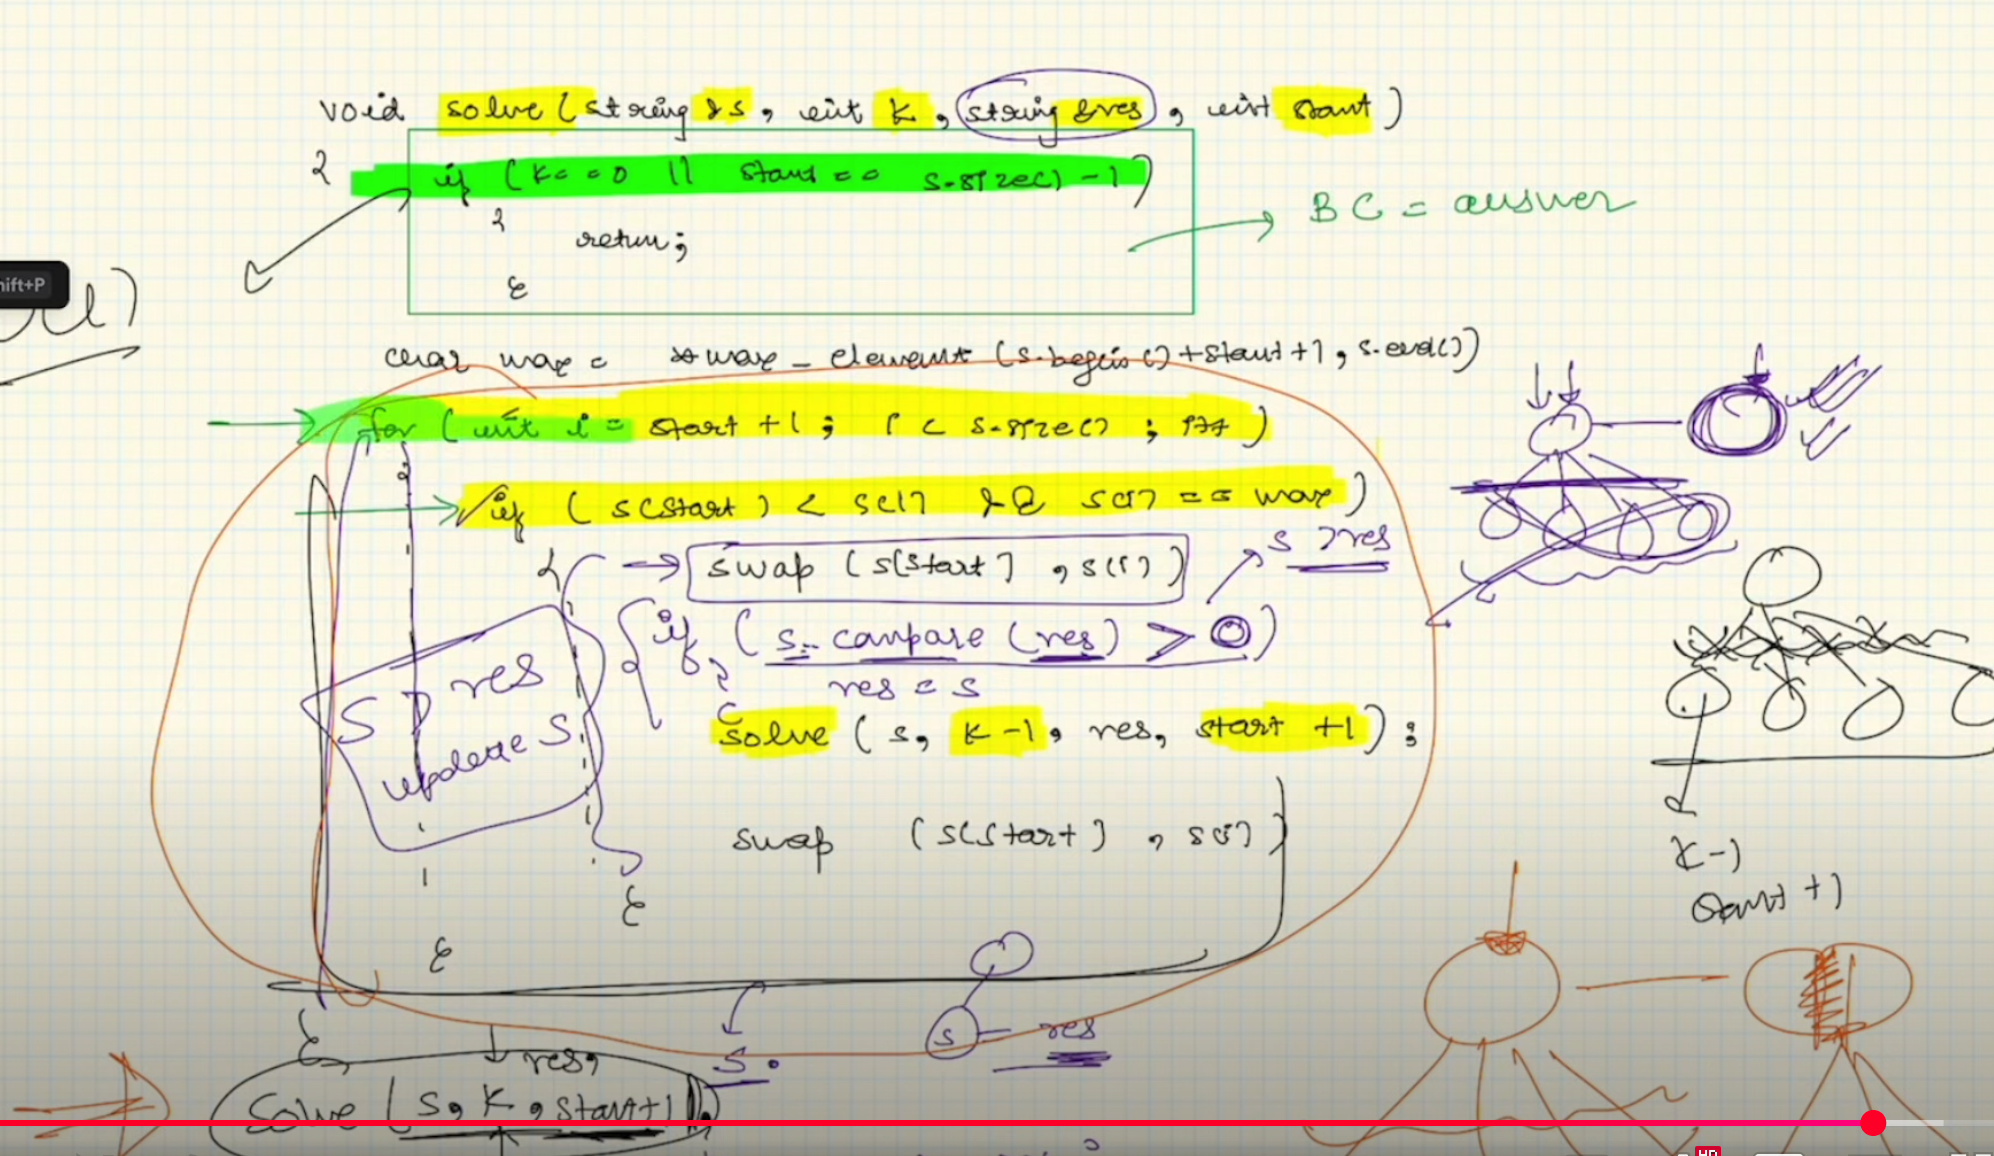 void solve (string &s, int k, string &res, int start)
{ if (k==0 || start == s.size() -1)
{
return;
}
BC = answer
hift+P
char max = *max_element (s.begin()+start+1, s.end())
for (int i = start +1; i < s.size() ; i++)
{
if (s(start) < s(i) && s(i) == max)
{ swap (s[start] , s(i))
s > res
if (s. compare (res) > 0)
{
res = s
}
S > res
update S
solve (s, k-1, res, start +1);
swap (s(start) , s(i))
k-1
start +1
}
}
s res
s.
}
res,
solve (s, k, start+1),
HD